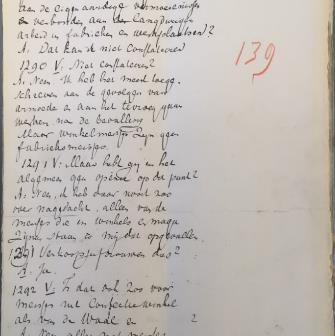 aan de eigenaardige vermoeienissen
en verbonden aan de langdurigen
arbeid in fabrieken en werkplaatsen?
A: Dat kan ik niet constateeren
1290 V: Niet constateeren?
A: Neen. Ik heb het meest toege-
schreven aan de gevolgen van
armoede en aan het te vroeg gaan
werken na de bevalling
Maar winkelmeisjes zijn geen
fabrieksmeisjes.
1291 V: Maar hebt gij in het
algemeen geen opinie op dit punt?
A: Neen, ik heb daar nooit zoo
over nagedacht, alleen van de
meisjes die in winkels en magazijnen
zijn, staan is mij dat opgevallen.
1291 Verkoopsjufvrouwen dus?
A: Ja.
1292 V: Is dat ook zoo voor
meisjes uit Confectiewinkel
als van de Waal en ?
A: Neen alleen met meisjes
139